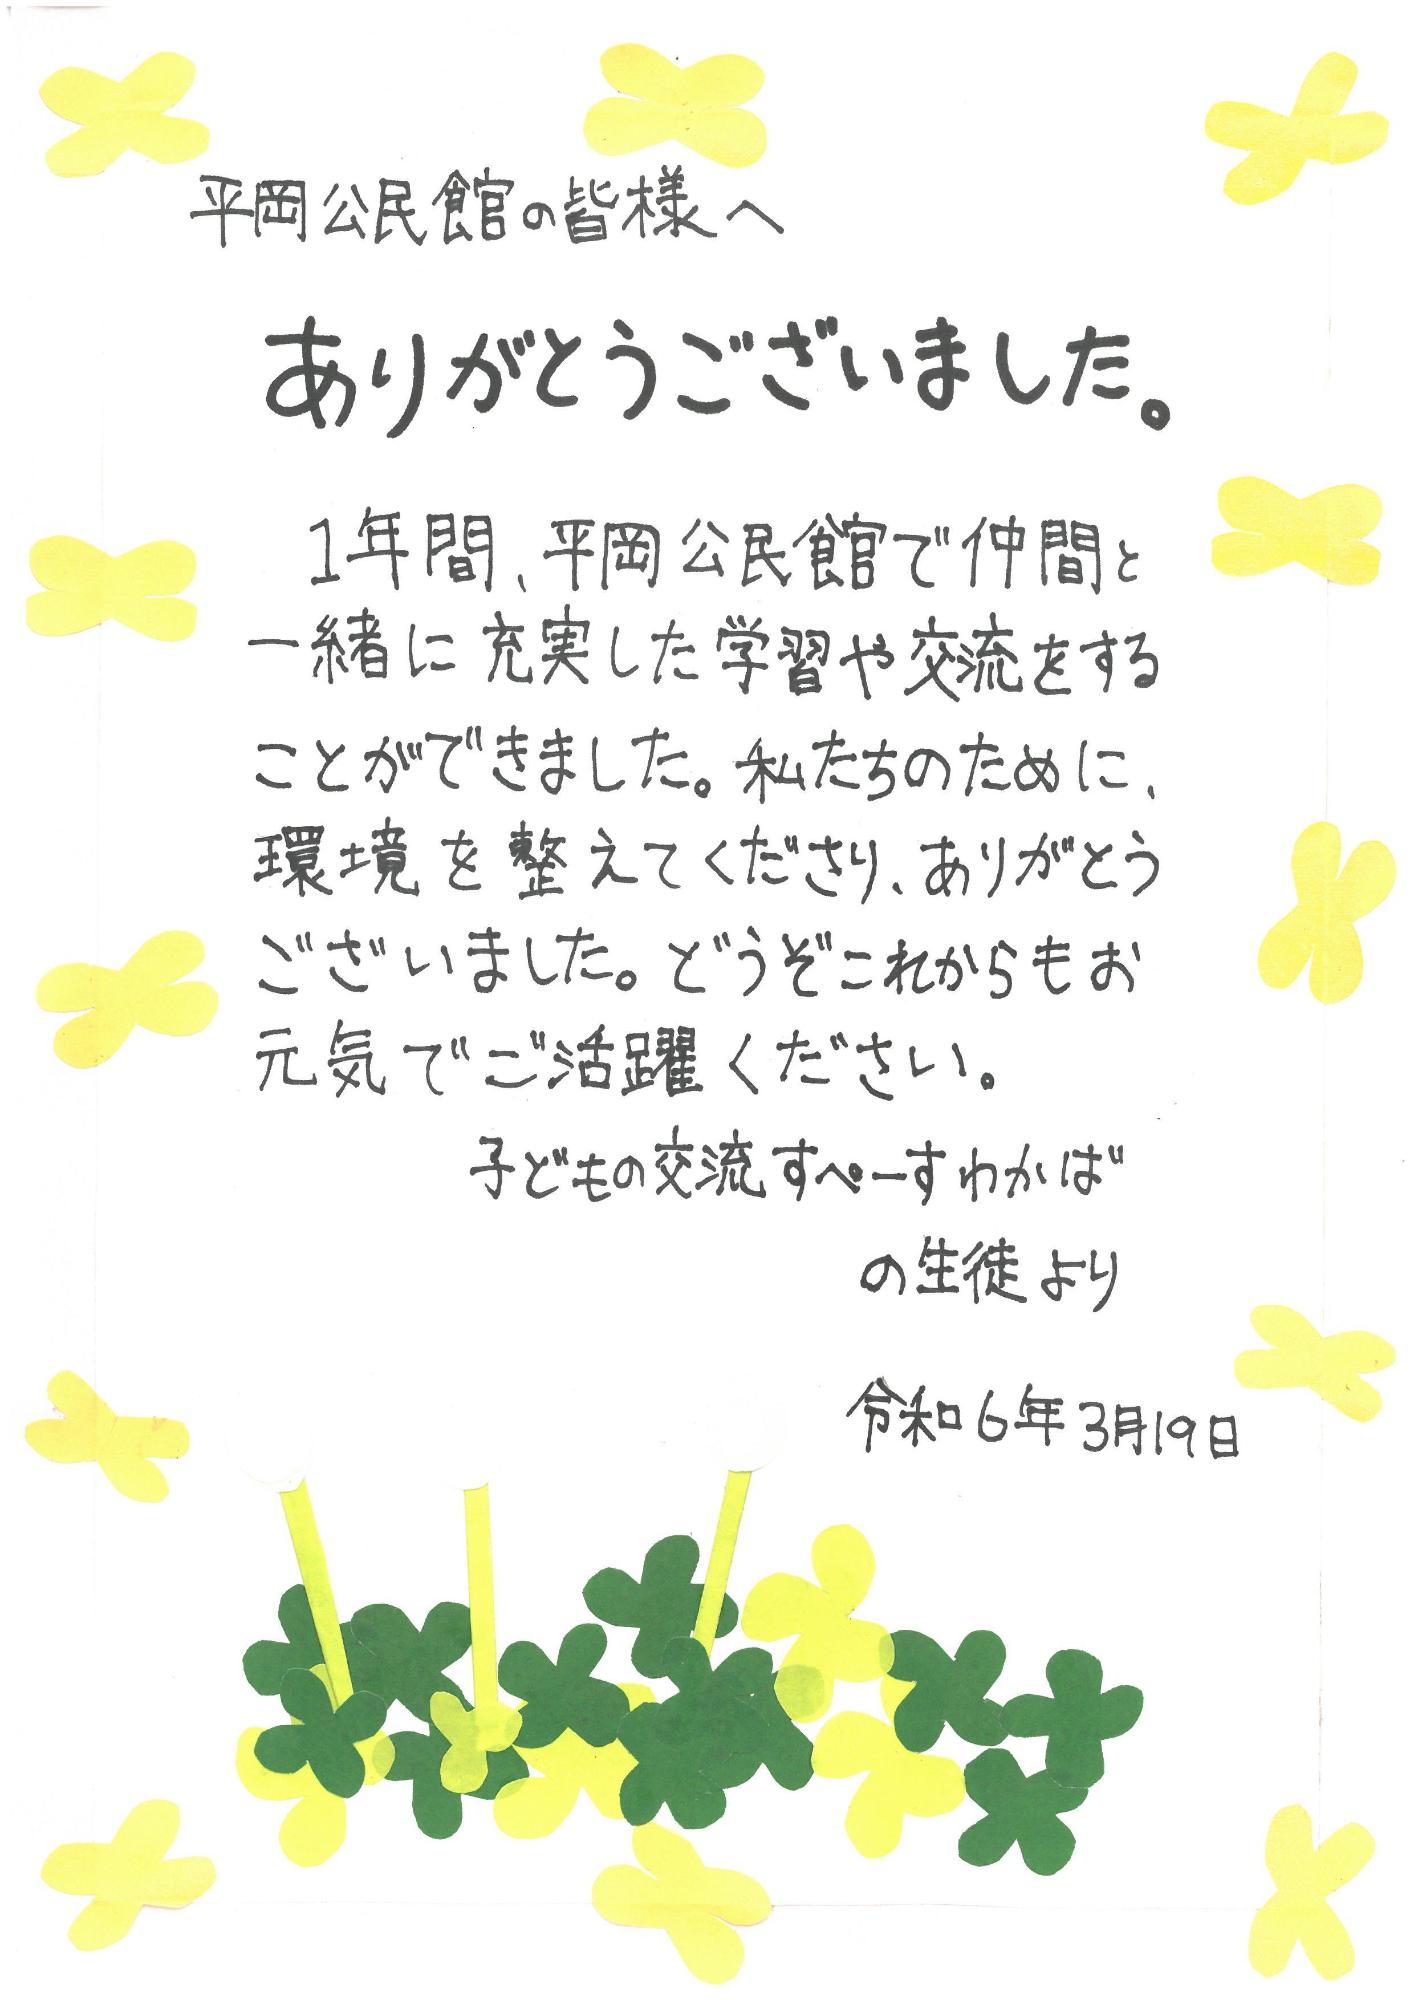 平岡公民館の皆様へ
ありがとうございました。
1年間、平岡公民館で仲間と
一緒に充実した学習や交流をする
ことができました。私たちのために、
環境を整えてくださり、ありがとう
ございました。どうぞこれからもお
元気でご活躍ください。
子どもの交流すぺーすわかば
の生徒より
令和6年3月19日